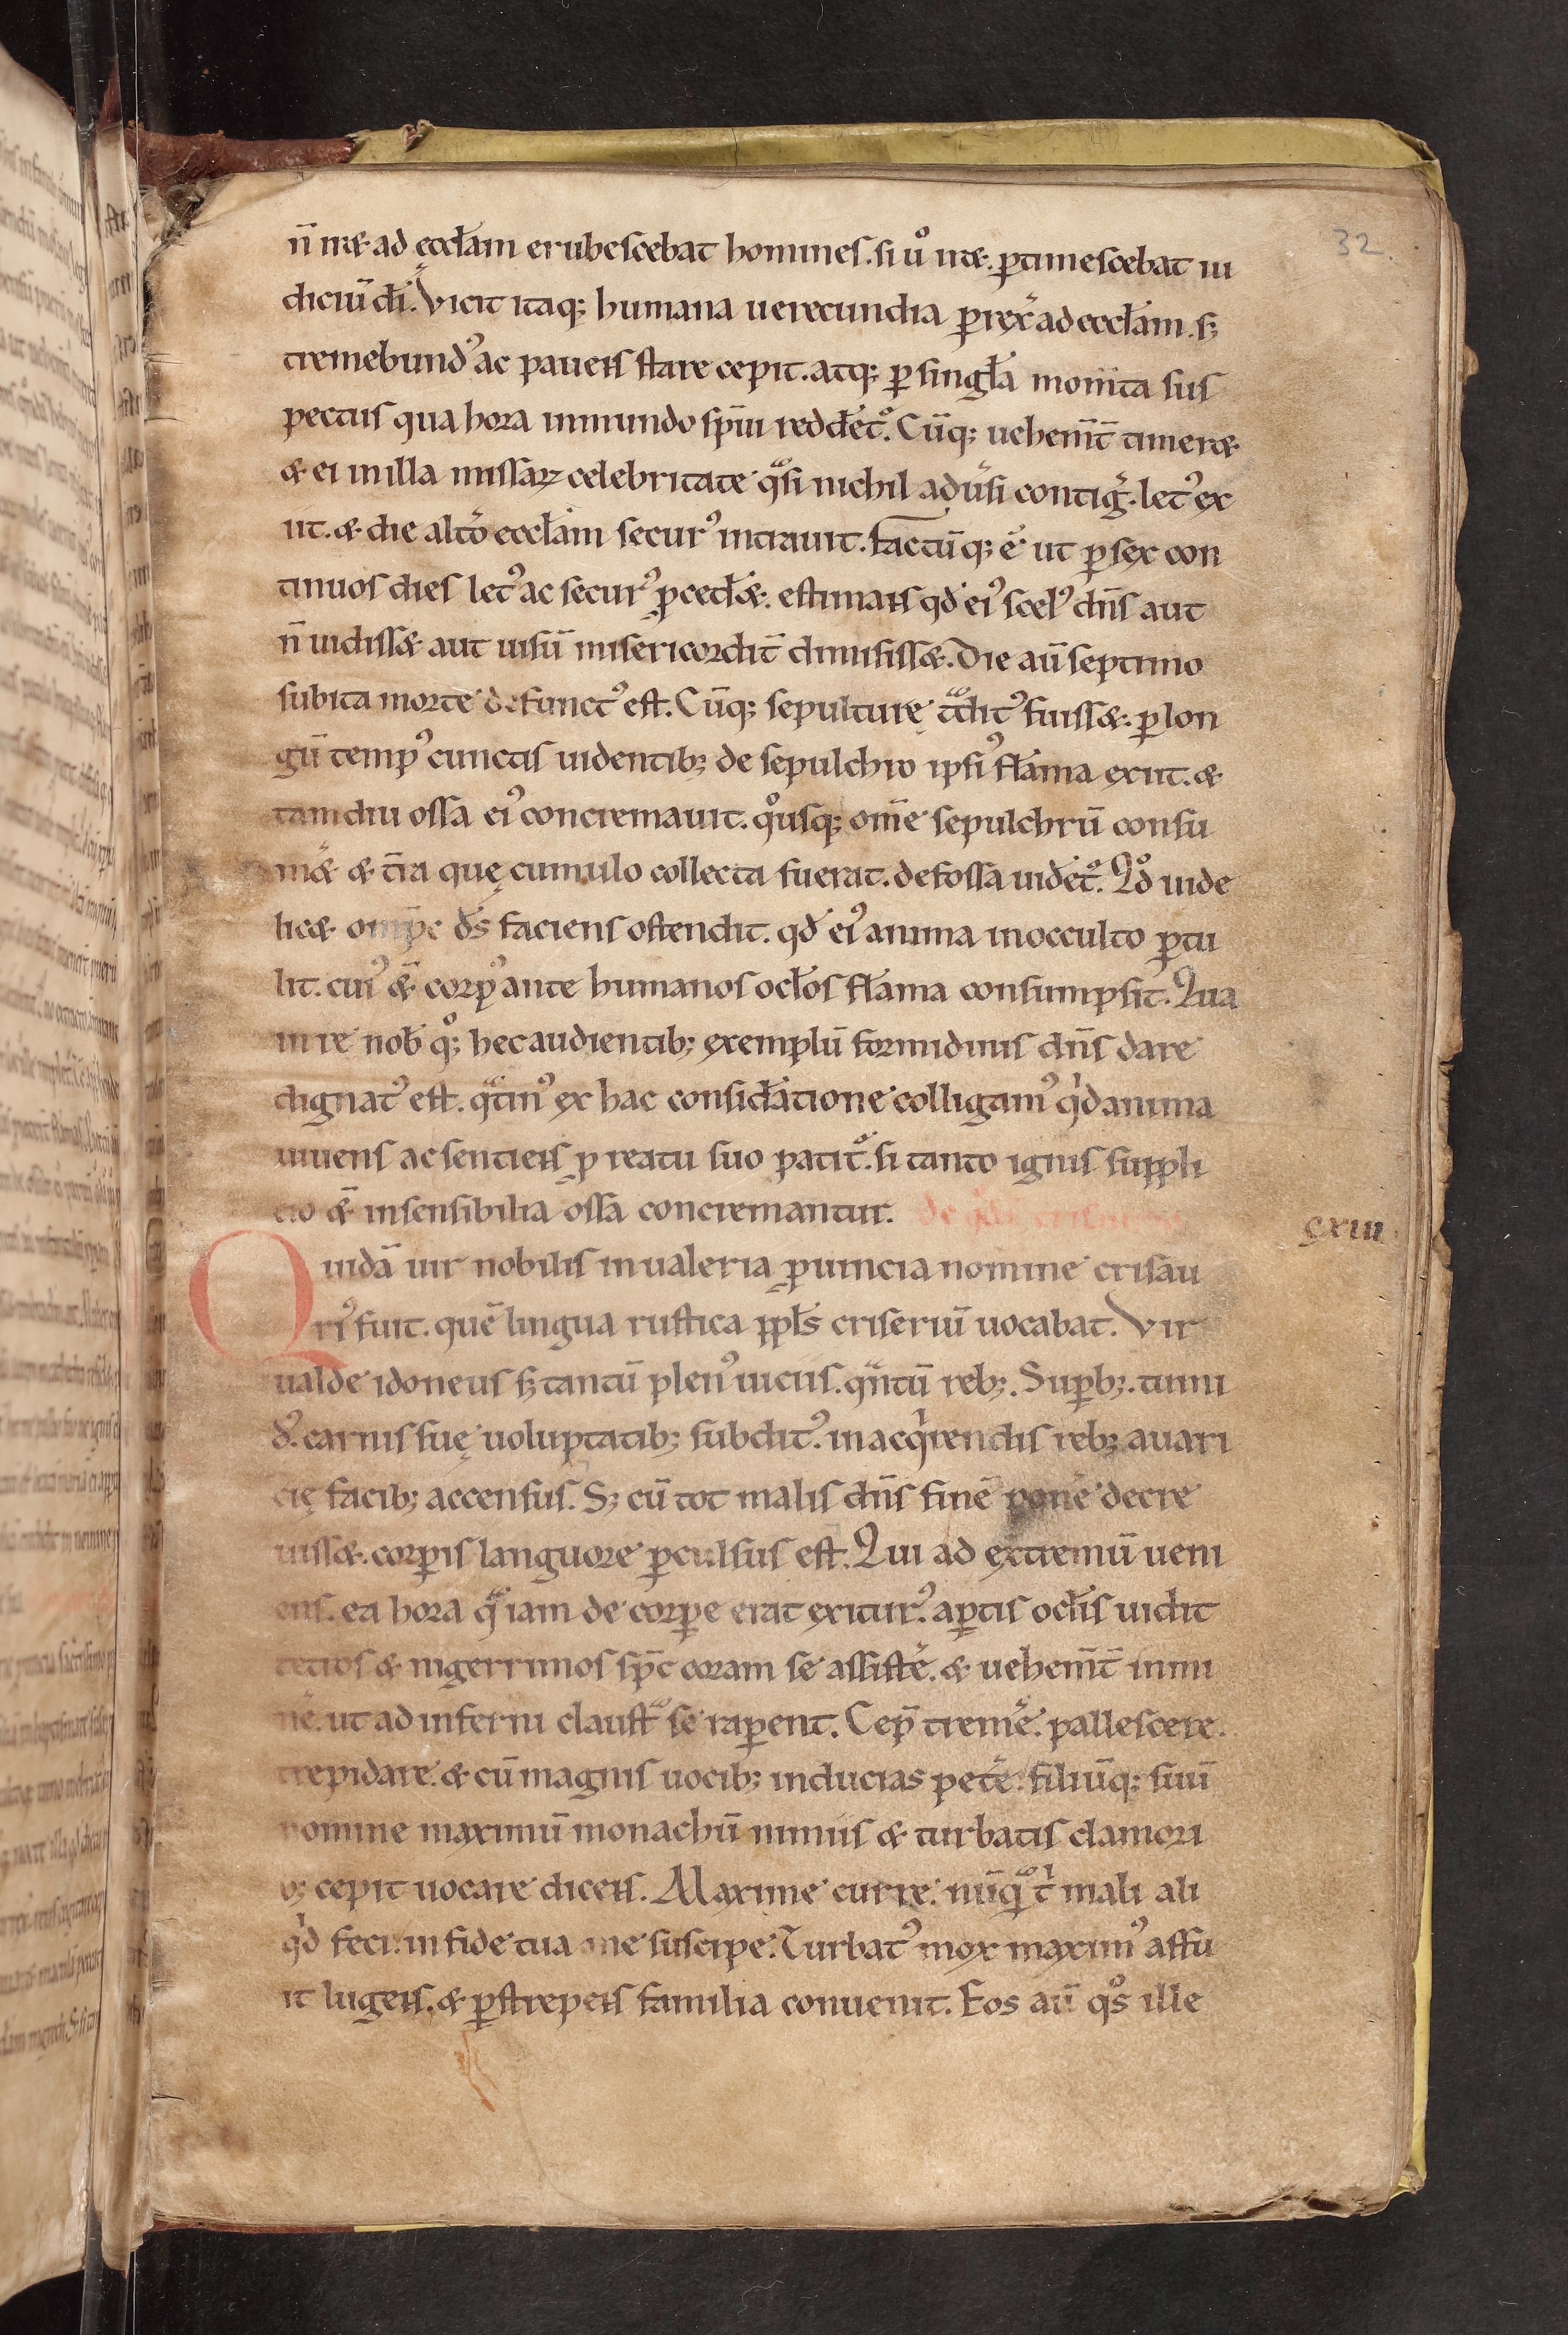 32
n̄ iret ad eccłam erubescebat homines. si u° iret. ꝑtimescebat iu
diciū dī. Vicit itaq; humana uerecundia ꝑrexͣ ad eccłam. sꝫ
tremebundꝰ ac pauens stare cepit. atq; ꝑ singła momta sus
pectus qua hora inmundo sp̄iu reddet᷑. Cūq; uehem̄t timeret
& ei in illa missaꝝ celebritate qͣsi nichil aduͥsi contigͥ. letꝰ ex
iit. & die altō eccłam securꝰ intrauit. Factūq; ē ut ꝑ sex con
tinuos dies letꝰ ac securꝰ ꝓced̄et. estimans qđ eiꝰ scelꝰ dn̄s aut
n̄ uidisset aut uisū misericordit̄ dimisisset. Die aū septimo
subita morte defunctꝰ est. Cūq; sepulturę tͣditꝰ fuisset. ꝑ lon
gū tempꝰ cunctis uidentibꝫ de sepulchro ipsiꝰ flāma exiit. &
tamdiu ossa eiꝰ concremauit. q°usq; om̄e sepulchrū consu
mēt & t̄ra quę cumulo collecta fuerat. defossa uidet᷑. Qđ uide
licet om̄pc ds̄ faciens ostendit. qđ eiꝰ anima in occulto ꝑtu
lit. cuiꝰ &̄ corpꝰ ante humanos ocłos flāma consumpsit. Qua
in re nob̄ q°q; hec audientibꝫ exemplū formidinis dn̄s dare
dignatꝰ est. qͣtinꝰ ex hac consid̄atione colligamꝰ qͥd anima
uiuens ac sentiens ꝓ reatu suo patit᷑. si tanto ignis suppli
cio &̄ insensibilia ossa concremantur.
cxiii
Quidā uir nobilis in ualeria ꝓuincia nomine crisau
riꝰ fuit. quē lingua rustica ppłs criseriū uocabat. Vir
ualde idoneus sꝫ tantū plenꝰ uiciis. qͣntū rebꝫ. Suꝑbꝫ. tumi
dꝰ. carnis suę uoluptatibꝫ subditꝰ. in acqͥrendis rebꝫ auari
cię facibꝫ accensus. Sꝫ cū tot malis dn̄s finē ponē decre
uisset. corꝑis languore ꝑculsus est. Qui ad extremū ueni
ens. ea hora qͣ iam de corꝑe erat exiturꝰ. aꝑtis ocłis uidit
tetros & nigerrimos sp̄c coram se assistē. & uehem̄t inmi
nē. ut ad inferni claustͣ se raꝑent. Cep̄ tremē. pallescere.
trepidare. & cū magnis uocibꝫ inducias petē. filiūq; suū
nomine maximū monachū nimiis & turbatis clamori
bꝫ cepit uocare dicens. Maxime curre. nūqͣ tͥ mali ali
qͥd feci. in fide tua me suscipe. Turbatꝰ mox maximꝰ affu
it lugens. & ꝑstrepens familia conuenit. Eos aū q°s ille